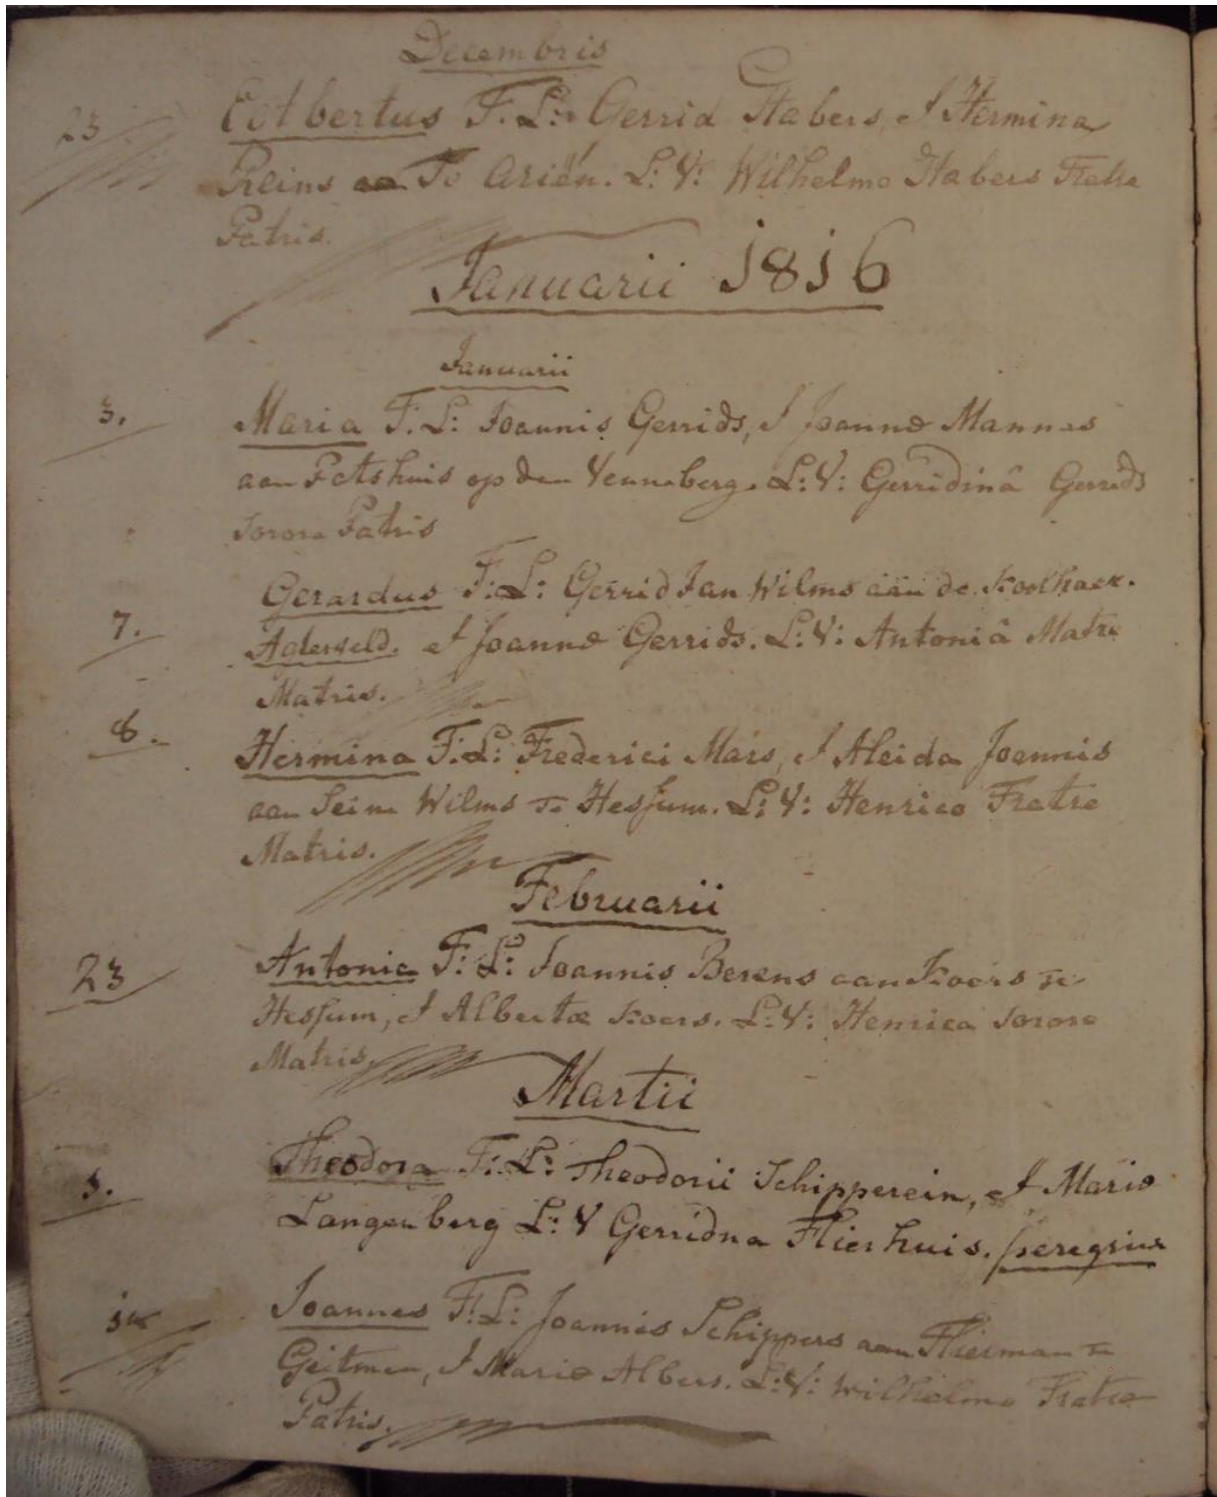 Decembris
23 Eetbertus F: L: Gerrid Habers, & Hermina
Reins aan Te Ariën. L: V: Wilhelmo Habers Fratre
Patris.
Januarii 1816
Januarii
3. Maria F: L: Joannis Gerrids, & Joannæ Mannes
aan Petshuis op den Venneberg. L: V: Gerridinâ Gerrids
Sorore Patris
Gerardus F: L: Gerrid Jan Wilms aan de Koolhaer.
7. & Joannæ Gerrids. L: V: Antoniâ Matre
Matris.
8. Hermina F: L: Frederici Mars, & Aleida Joannis
aan Seine Wilms Te Hessum. L: V: Henrico Fratre
Matris.
Februarii
23 Antonia F: L: Joannis Berens aan Koers Te
Hessum, & Albertæ Koers. L: V: Henrica Sorore
Matris
Martii
5. Theodora F: L: Theodorii Schipperein, & Mariæ
Langenberg L: V Gerridna Flierhuis.
Joannes F: L: Joannis Schippers aan Flierman Te
Geitmen, & Mariæ Albers. L: V: Wilhelmo Fratre
Patris.